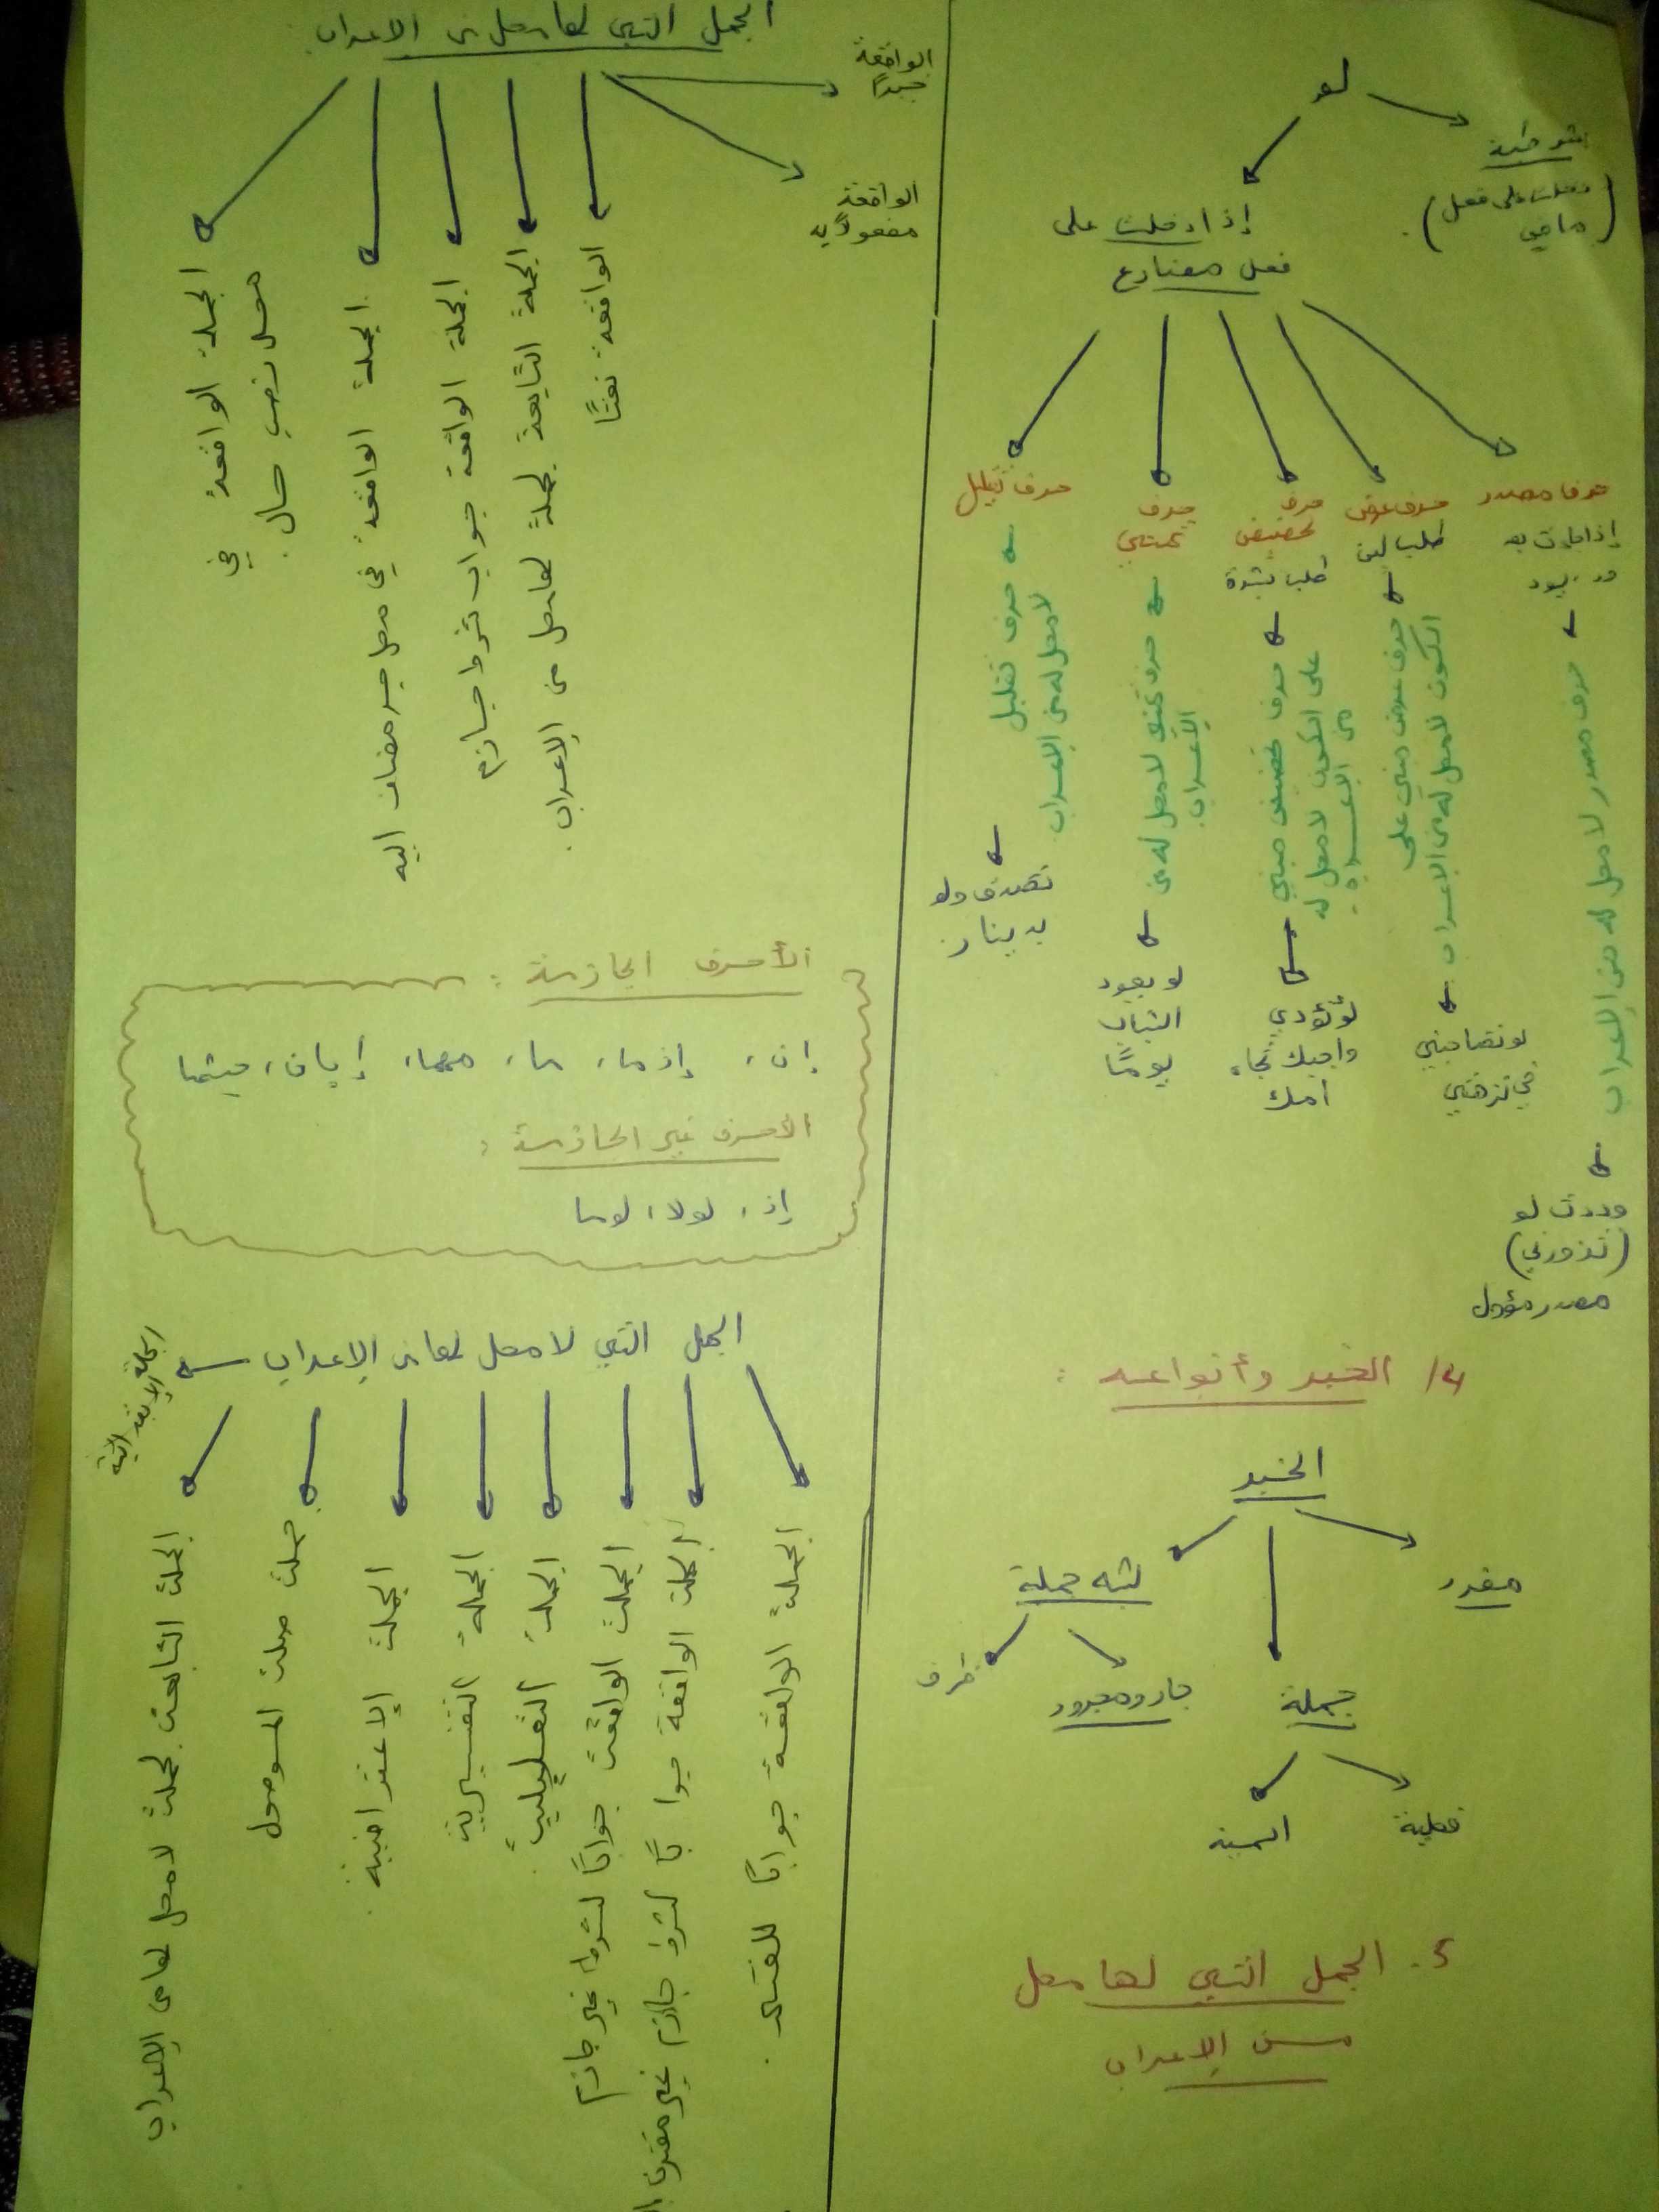 لو
شرطية
(دخلت على فعل
ماضي)
إذا دخلت على
فعل مضارع
حرف مصدر
إذا جاءت بعد
ود، يود
حرف مصدر لا محل له من الإعراب
وددت لو
(تزورني)
مصدر مؤول
حرف عرض
طلب لين
حرف عرض مبني على
السكون لا محل له من الإعراب
لو تصاحبني
في نزهتي
حرف
تحضيض
طلب بشدة
حرف تحضيض مبني
على السكون لا محل له
من الإعراب
لو تؤدي
واجبك تجاه
أمك
حرف
تمني
حرف تمني لا محل له من
الإعراب.
لو يعود
الشباب
يومًا
حرف تقليل
حرف تقليل
لا محل له من الإعراب
تصدق ولو
بدينار.
4/ الخبر وأنواعه :
الخبر
مفرد
جملة
فعلية
اسمية
شبه جملة
جار ومجرور
ظرف
5. الجمل التي لها محل
من الإعراب
الجمل التي لها محل من الإعراب
الواقعة
خبرًا
الواقعة
مفعولًا به
الواقعة نعتًا
الجملة التابعة لجملة لها محل من الإعراب.
الجملة الواقعة جواب شرط جازم
الجملة الواقعة في محل جر مضاف إليه
الجملة الواقعة في
محل نصب حال.
الأحرف الجازمة :
إن، إذما، ما، مهما، إيان، حيثما
الأحرف غير الجازمة :
إذ، لولا، لوما
الجمل التي لا محل لها من الإعراب
الجملة الإبتدائية
الجملة الواقعة جوابًا للقسم.
الجملة الواقعة جوابًا لشرط جازم غير مقترن
الجملة الواقعة جوابًا لشرط غير جازم
الجملة التعليلية.
الجملة التفسيرية
الجملة الإعتراضية.
جملة صلة الموصول
الجملة التابعة لجملة لا محل لها من الإعراب